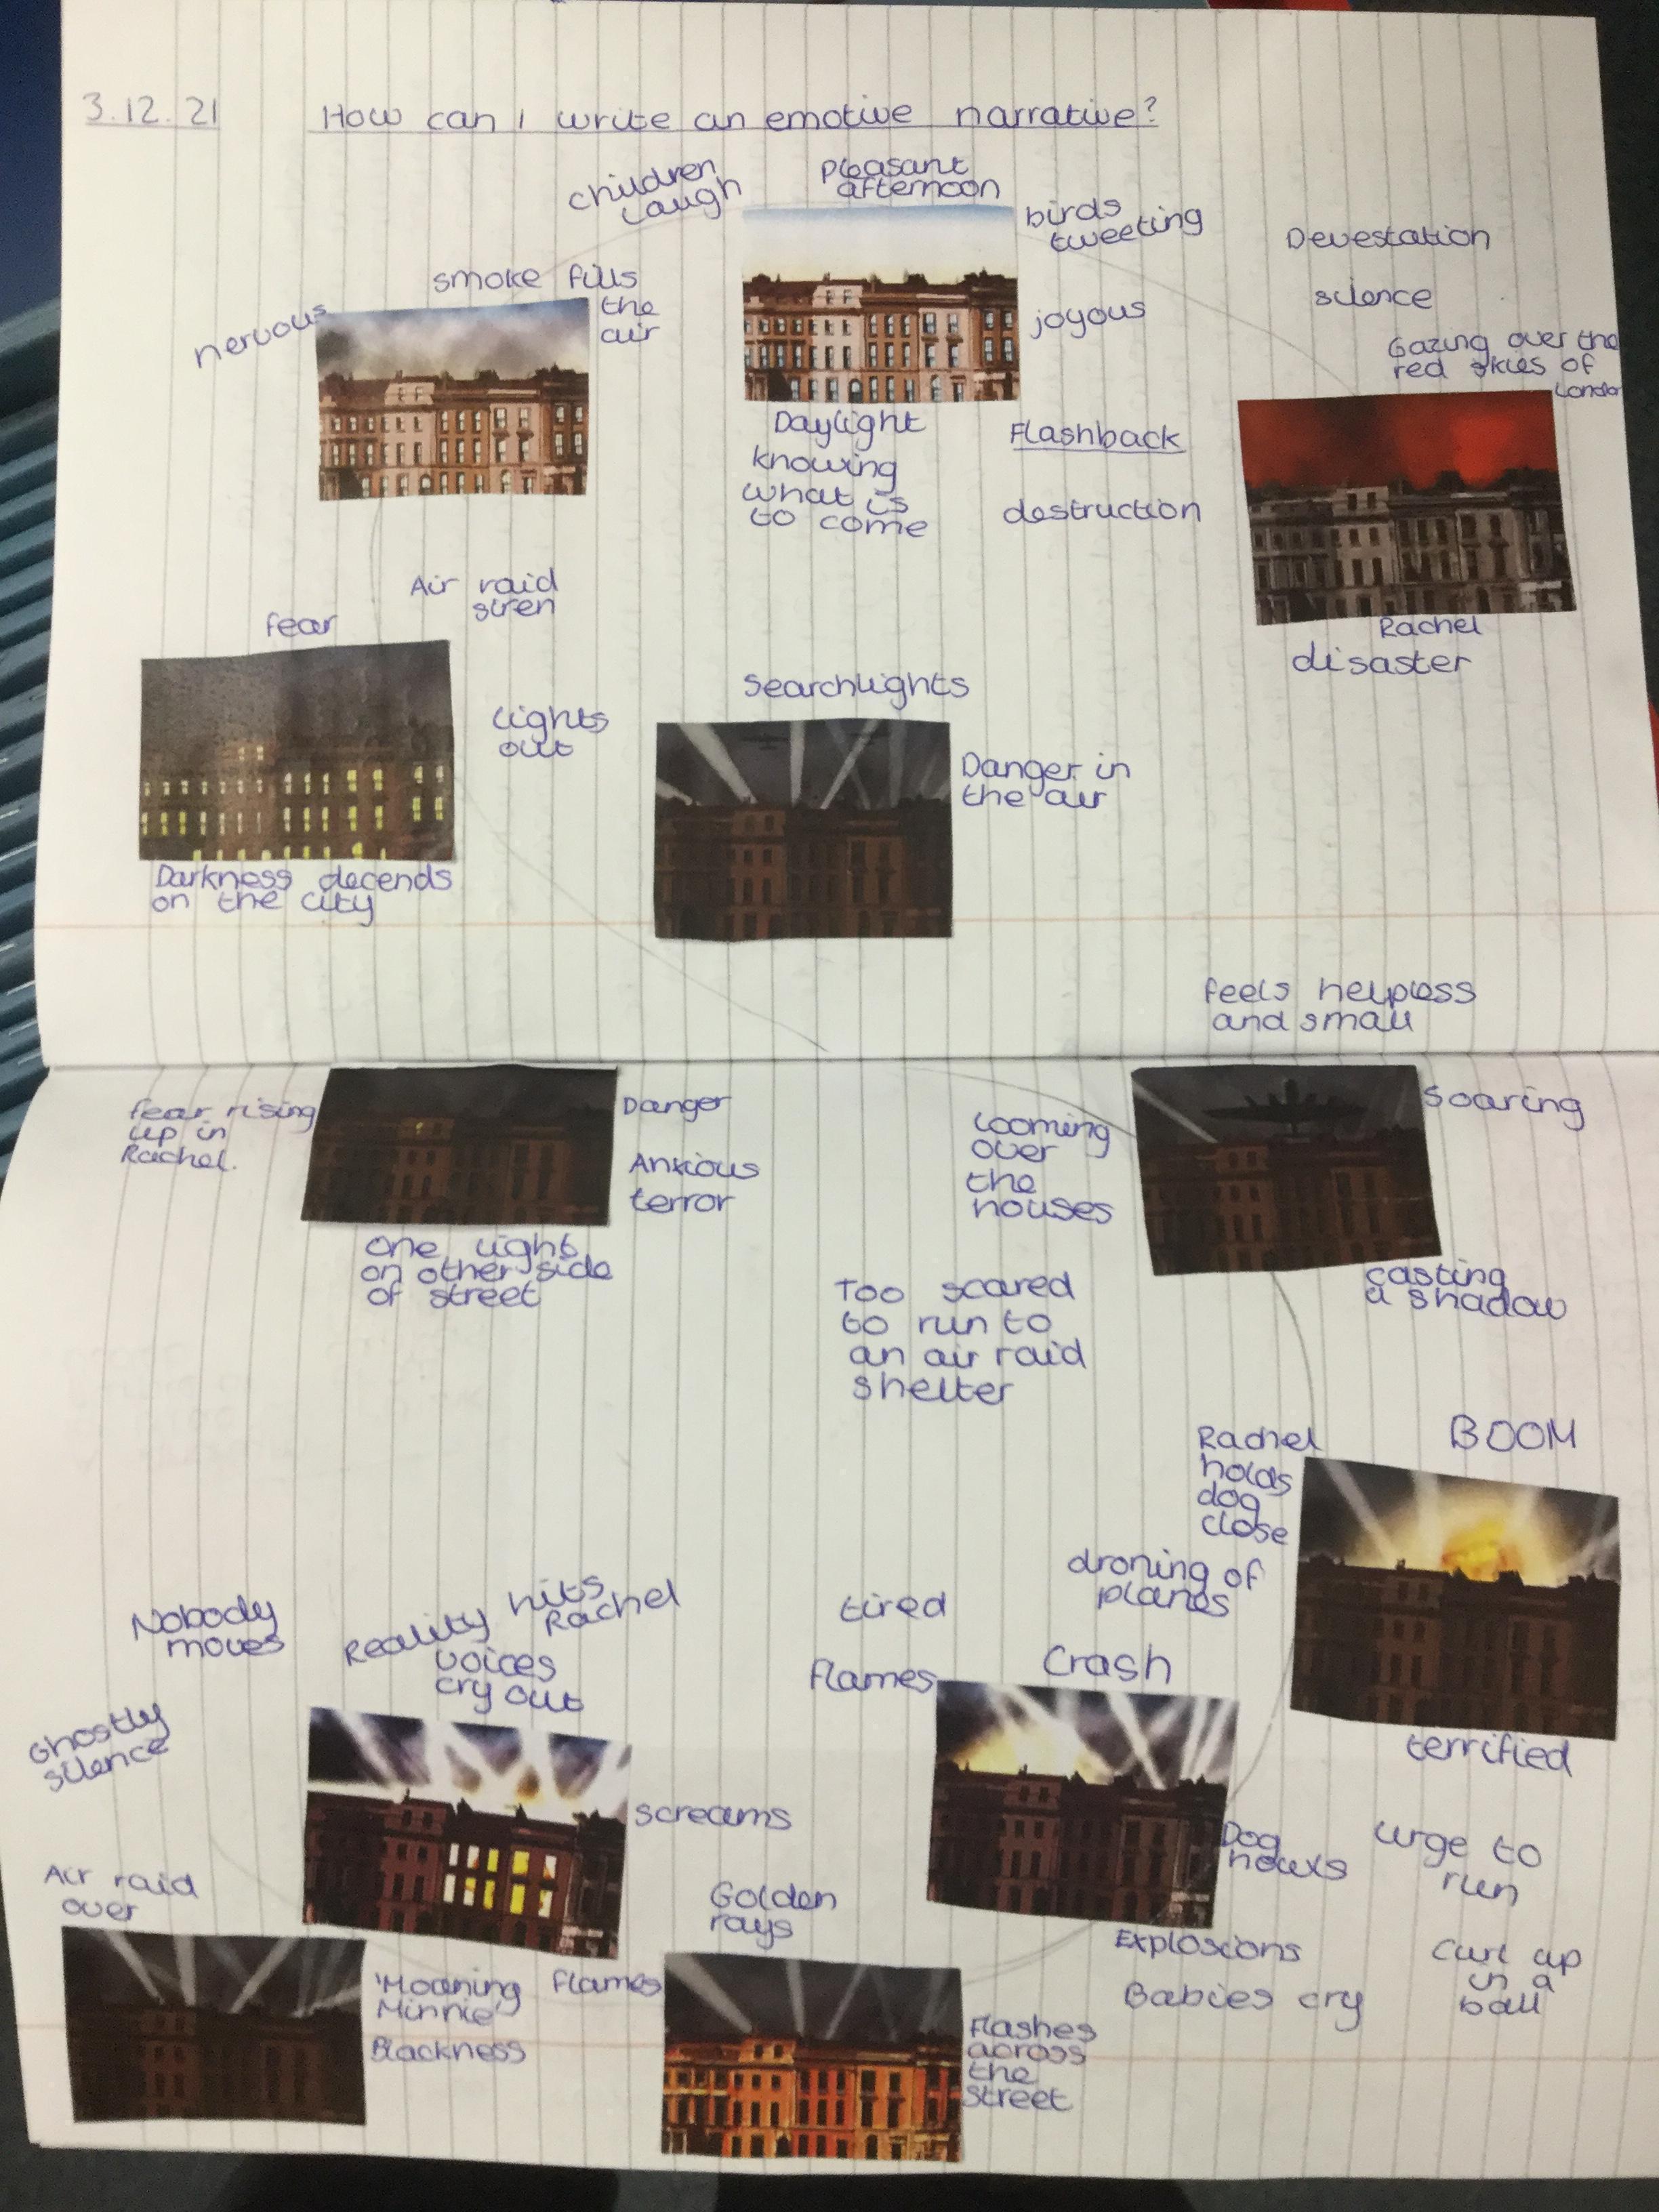 3.12.21
How can I write an emotive narrative?
children
laugh
Pleasant
afternoon
birds
tweeting
joyous
Daylight
knowing
what is
to come
smoke fills
the
air
nervous
Devestation
silence
Gazing over the
red skies of
London
Flashback
destruction
Rachel
disaster
Air raid
siren
fear
lights
out
Darkness decends
on the city
Searchlights
Danger in
the air
feels helpless
and small
fear rising
up in
Rachel.
Danger
Anxious
terror
One light
on other side
of street
Looming
over
the
houses
Soaring
casting
a shadow
Too scared
to run to
an air raid
shelter
Rachel
holds
dog
close
BOOM
droning of
planes
terrified
tired
flames
Crash
Dog
howls
urge to
run
Explosions
Babies cry
Curl up
in a
ball
Nobody
moves
Reality hits
Rachel
voices
cry out
Ghostly
silence
screams
Air raid
over
'Moaning
Minnie'
Blackness
Golden
rays
flames
Flashes
across
the
street